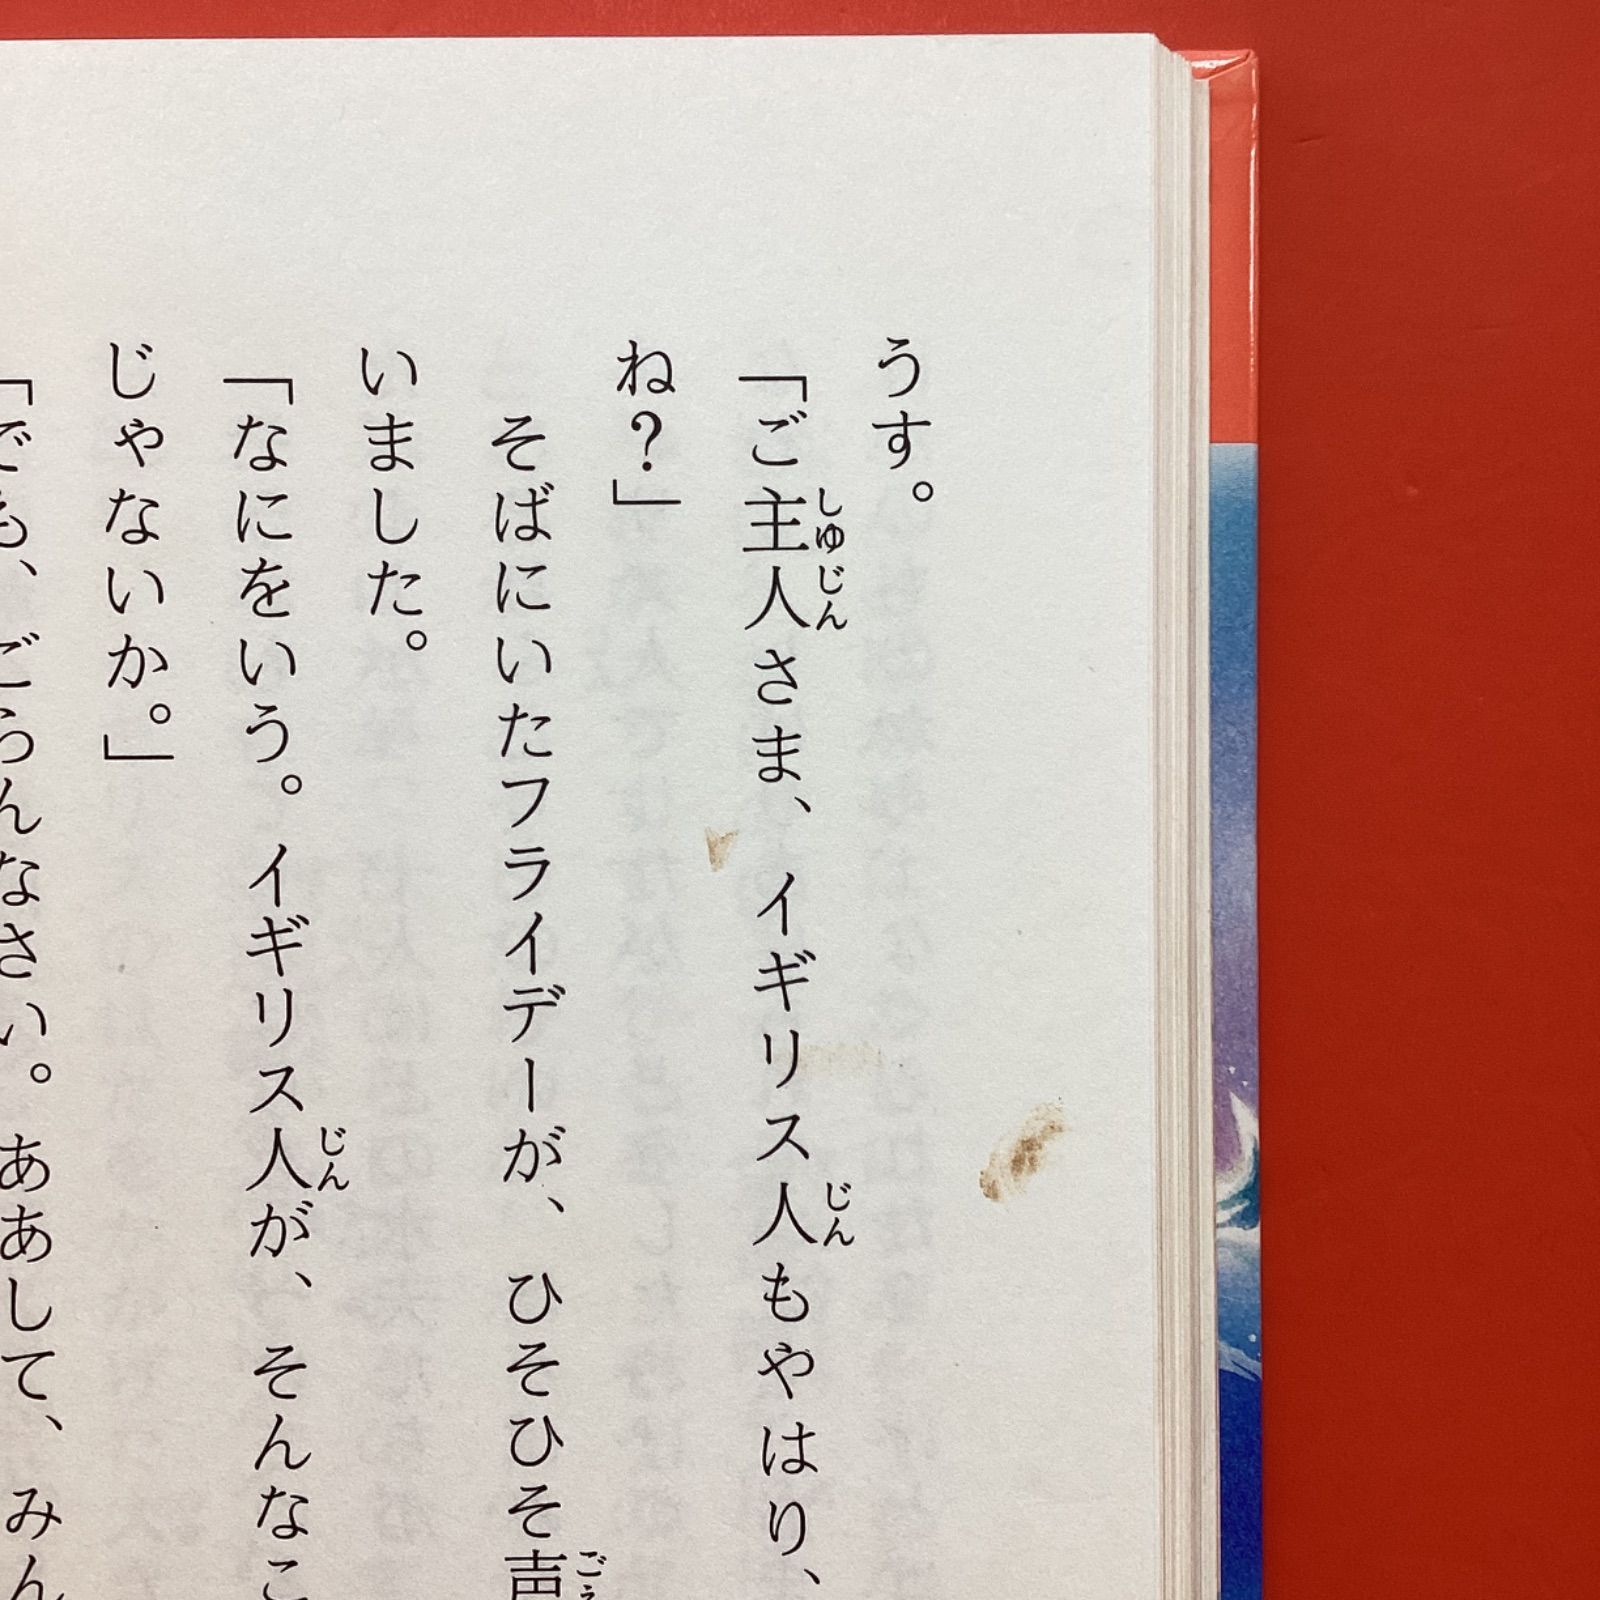 うす。
「ご主人さま、イギリス人もやはり、
ね？」
そばにいたフライデーが、ひそひそ声
いました。
「なにをいう。イギリス人が、そんなこ
じゃないか。」
「でも、ごらんなさい。ああして、みん